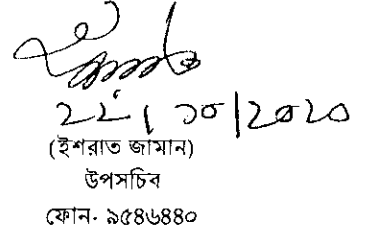 ২২।১০|২০২০
(ইশরাত জামান)
উপসচিব
ফোন- ৯৫৪৬৪৪০